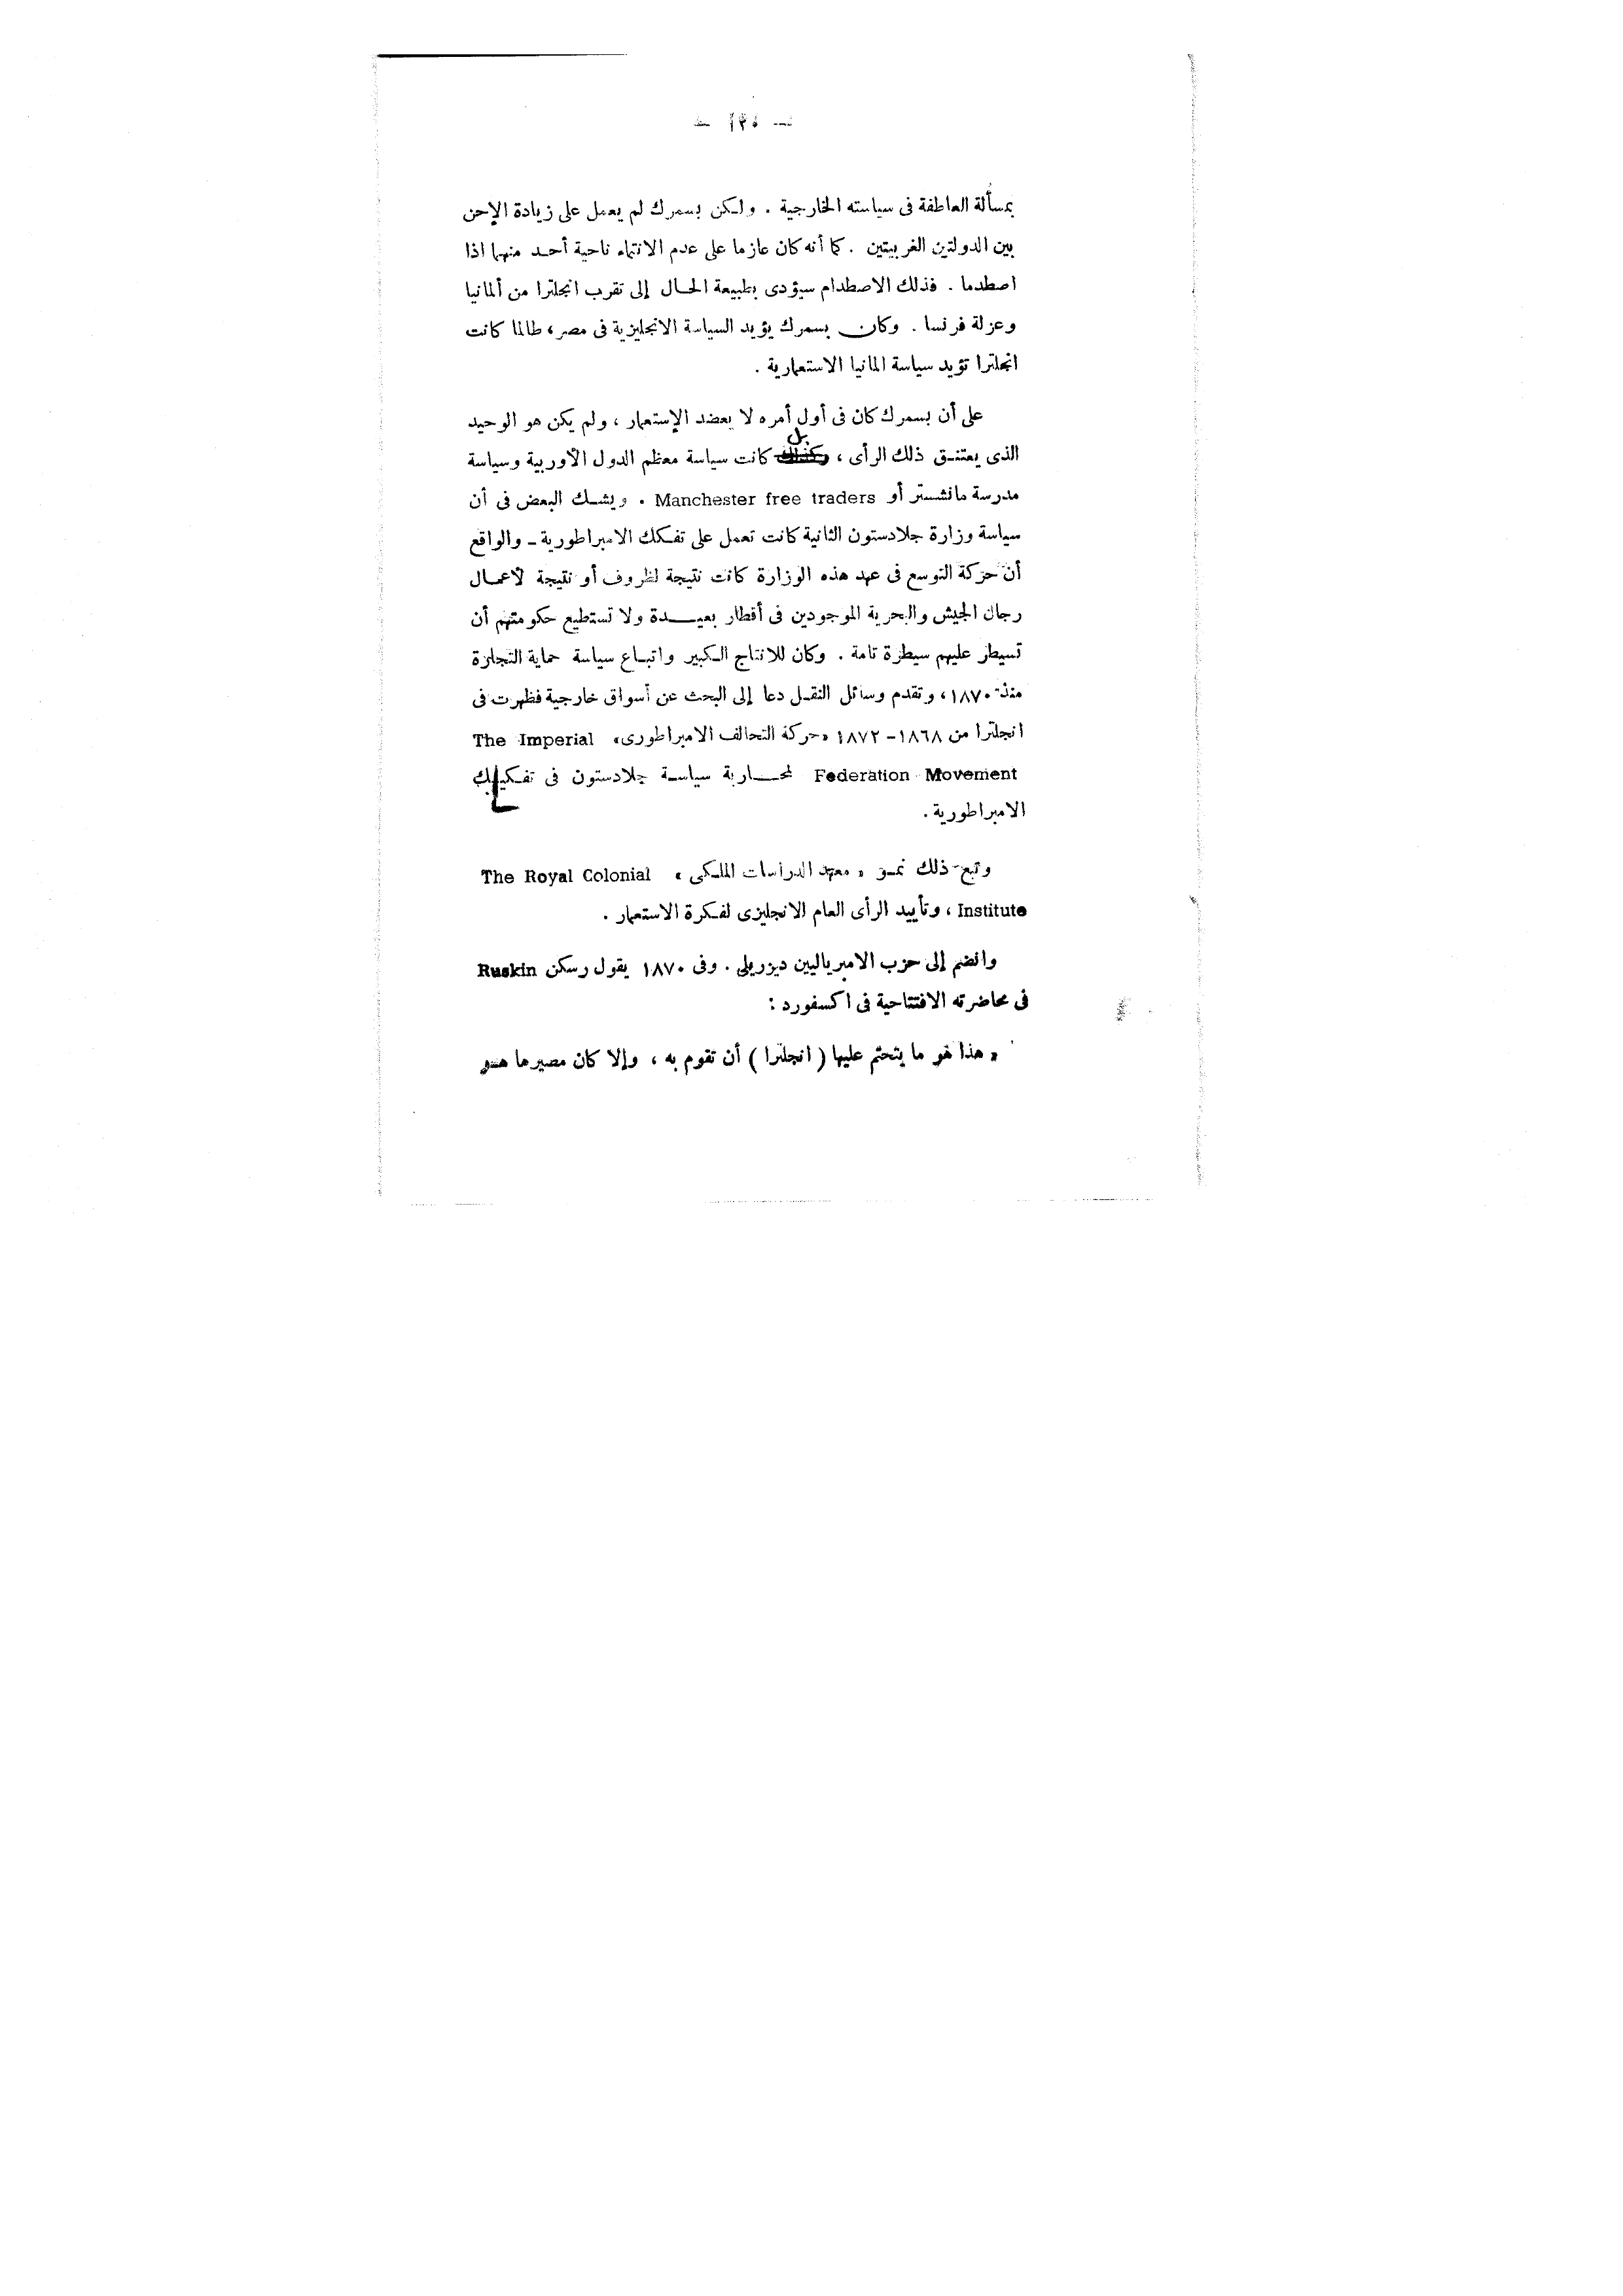 بمسألة العاطفة فى سياسته الخارجية . ولكن بسمرك لم يعمل على زيادة الإحن
بين الدولتين الغربيتين . كما أنه كان عازما على عدم الانتماء ناحية أحد منهما اذا
اصطدما . فذلك الاصطدام سيؤدى بطبيعة الحال إلى تقرب انجلترا من ألمانيا
وعزلة فرنسا . وكان بسمرك يؤيد السياسة الانجليزية فى مصر، طالما كانت
انجلترا تؤيد سياسة المانيا الاستعمارية .
على أن بسمرك كان فى أول أمره لا يعضد الإستعمار ، ولم يكن هو الوحيد
الذى يعتنق ذلك الرأى ، بل كانت سياسة معظم الدول الأوربية وسياسة
مدرسة مانشستر أو Manchester free traders . ويشك البعض فى أن
سياسة وزارة جلادستون الثانية كانت تعمل على تفكك الامبراطورية ـ والواقع
أن حركة التوسع فى عهد هذه الوزارة كانت نتيجة لظروف أو نتيجة لأعمال
رجال الجيش والبحرية الموجودين فى أقطار بعيدة ولا تستطيع حكومتهم أن
تسيطر عليهم سيطرة تامة . وكان للانتاج الكبير واتباع سياسة حماية التجارة
منذ ١٨٧٠، وتقدم وسائل النقل دعا إلى البحث عن أسواق خارجية فظهرت فى
انجلترا من ١٨٦٨ - ١٨٧٢ «حركة التحالف الامبراطورى» The Imperial
Federation Movement لمحاربة سياسة جلادستون فى تفكيك
الامبراطورية .
وتبع ذلك نمو « معهد الدراسات الملكى » The Royal Colonial
Institute ، وتأييد الرأى العام الانجليزى لفكرة الاستعمار .
وانضم إلى حزب الامبرياليين ديزريلى . وفى ١٨٧٠ يقول رسكن Ruskin
فى محاضرته الافتتاحية فى اكسفورد :
« هذا هو ما يتحتم عليها ( انجلترا ) أن تقوم به ، وإلا كان مصيرها هو